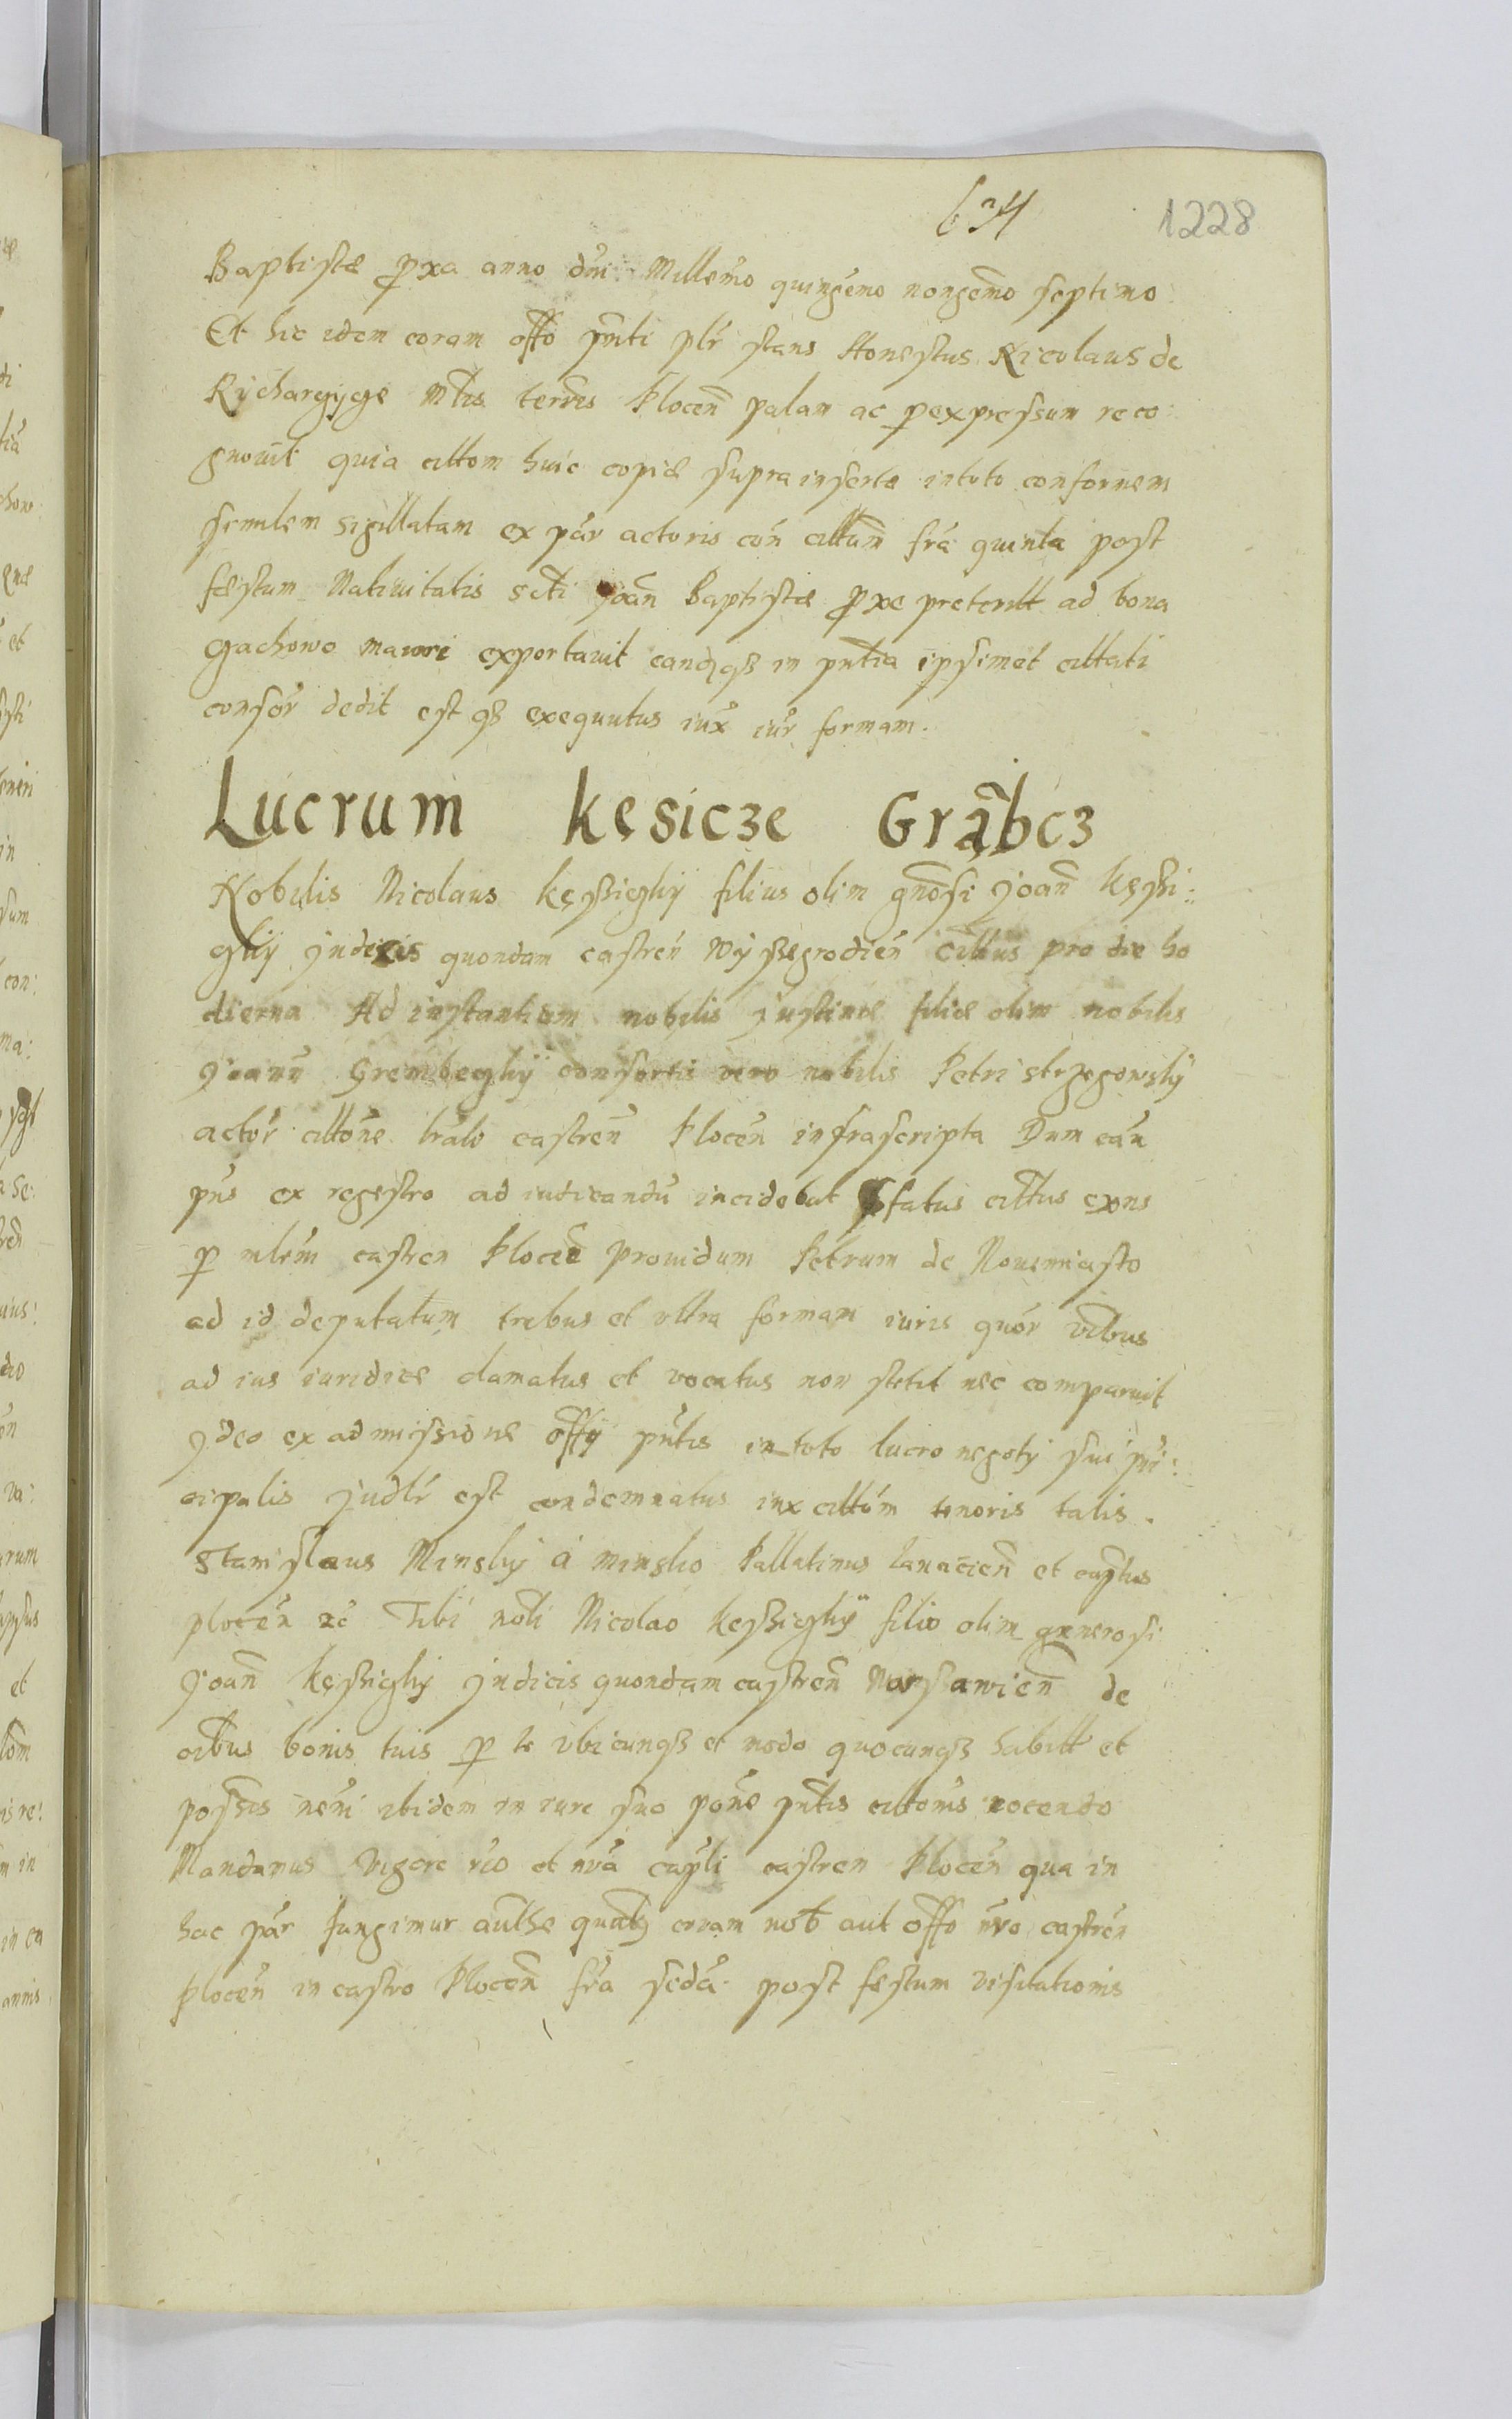 634 1228
Baptistæ pxa anno dni Millemo quingemo nongemo septimo
Et hic idem coram offo pnti plr stans Honestus Nicolaus de
Rychargycze Mlis terris Plocen palam ac pexpressum reco:
gnouit quia cittom huic copiæ supra insertæ in toto conformem
similem sigillatam ex par actoris con cittum fra quinta post
fæstum Natiuitatis Scti Joan Baptistæ pxe preteritt ad bona
Gachowo maiori exportauit eandqз in pntia ipsimet cittati
consor dedit est qз exequutus iux iur formam.
Lucrum Kęsicze Grąbcz
Nobilis Nicolaus Kęssiczkÿ filius olim gnosi Joan Kęssi:
czkÿ Judicis quondam castren Wÿssegrodien cittus pro die ho
dierna Ad instantiam nobilis Justinæ filiæ olim nobilis
Joann Grembeczkÿ consortis vero nobilis Petri Strzegowskÿ
actor cittone lralo castren Plocen infrascripta Dum cau
pns ex regestro ad iudicandu incidebat pfatus cittus exns
p mlem castren Plocen prouidum Petrum de Nouemiasto
ad id deputatum trebus et vltra formam iuris quor vibus
ad ius iuridice clamatus et vocatus non stetit nec comparuit
Ideo ex admissione offÿ pntis in toto lucro negotÿ sui prī:
cipalis Judlr est condemnatus iux cittom tenoris talis.
Stanislaus Minskÿ a Minsko Pallatinus Lanacien et captus
plocen zc Tibi nobi Nicolao Kęssiczkÿ filio olim generosi
Joan Kęssiczkÿ Judicis quondam castren Warssawien de
oibus bonis tuis p te vbicunqз et modo quocunqз habitt et
possis nemi ibidem in iure suo pone pntis cittonis nocendo
Mandamus vigore rio et nra capli castren Plocen qua in
hac par fungimur authe quatz coram nob aut offo nro castren
Plocen in castro Plocen fra scda post fæstum Visitationis